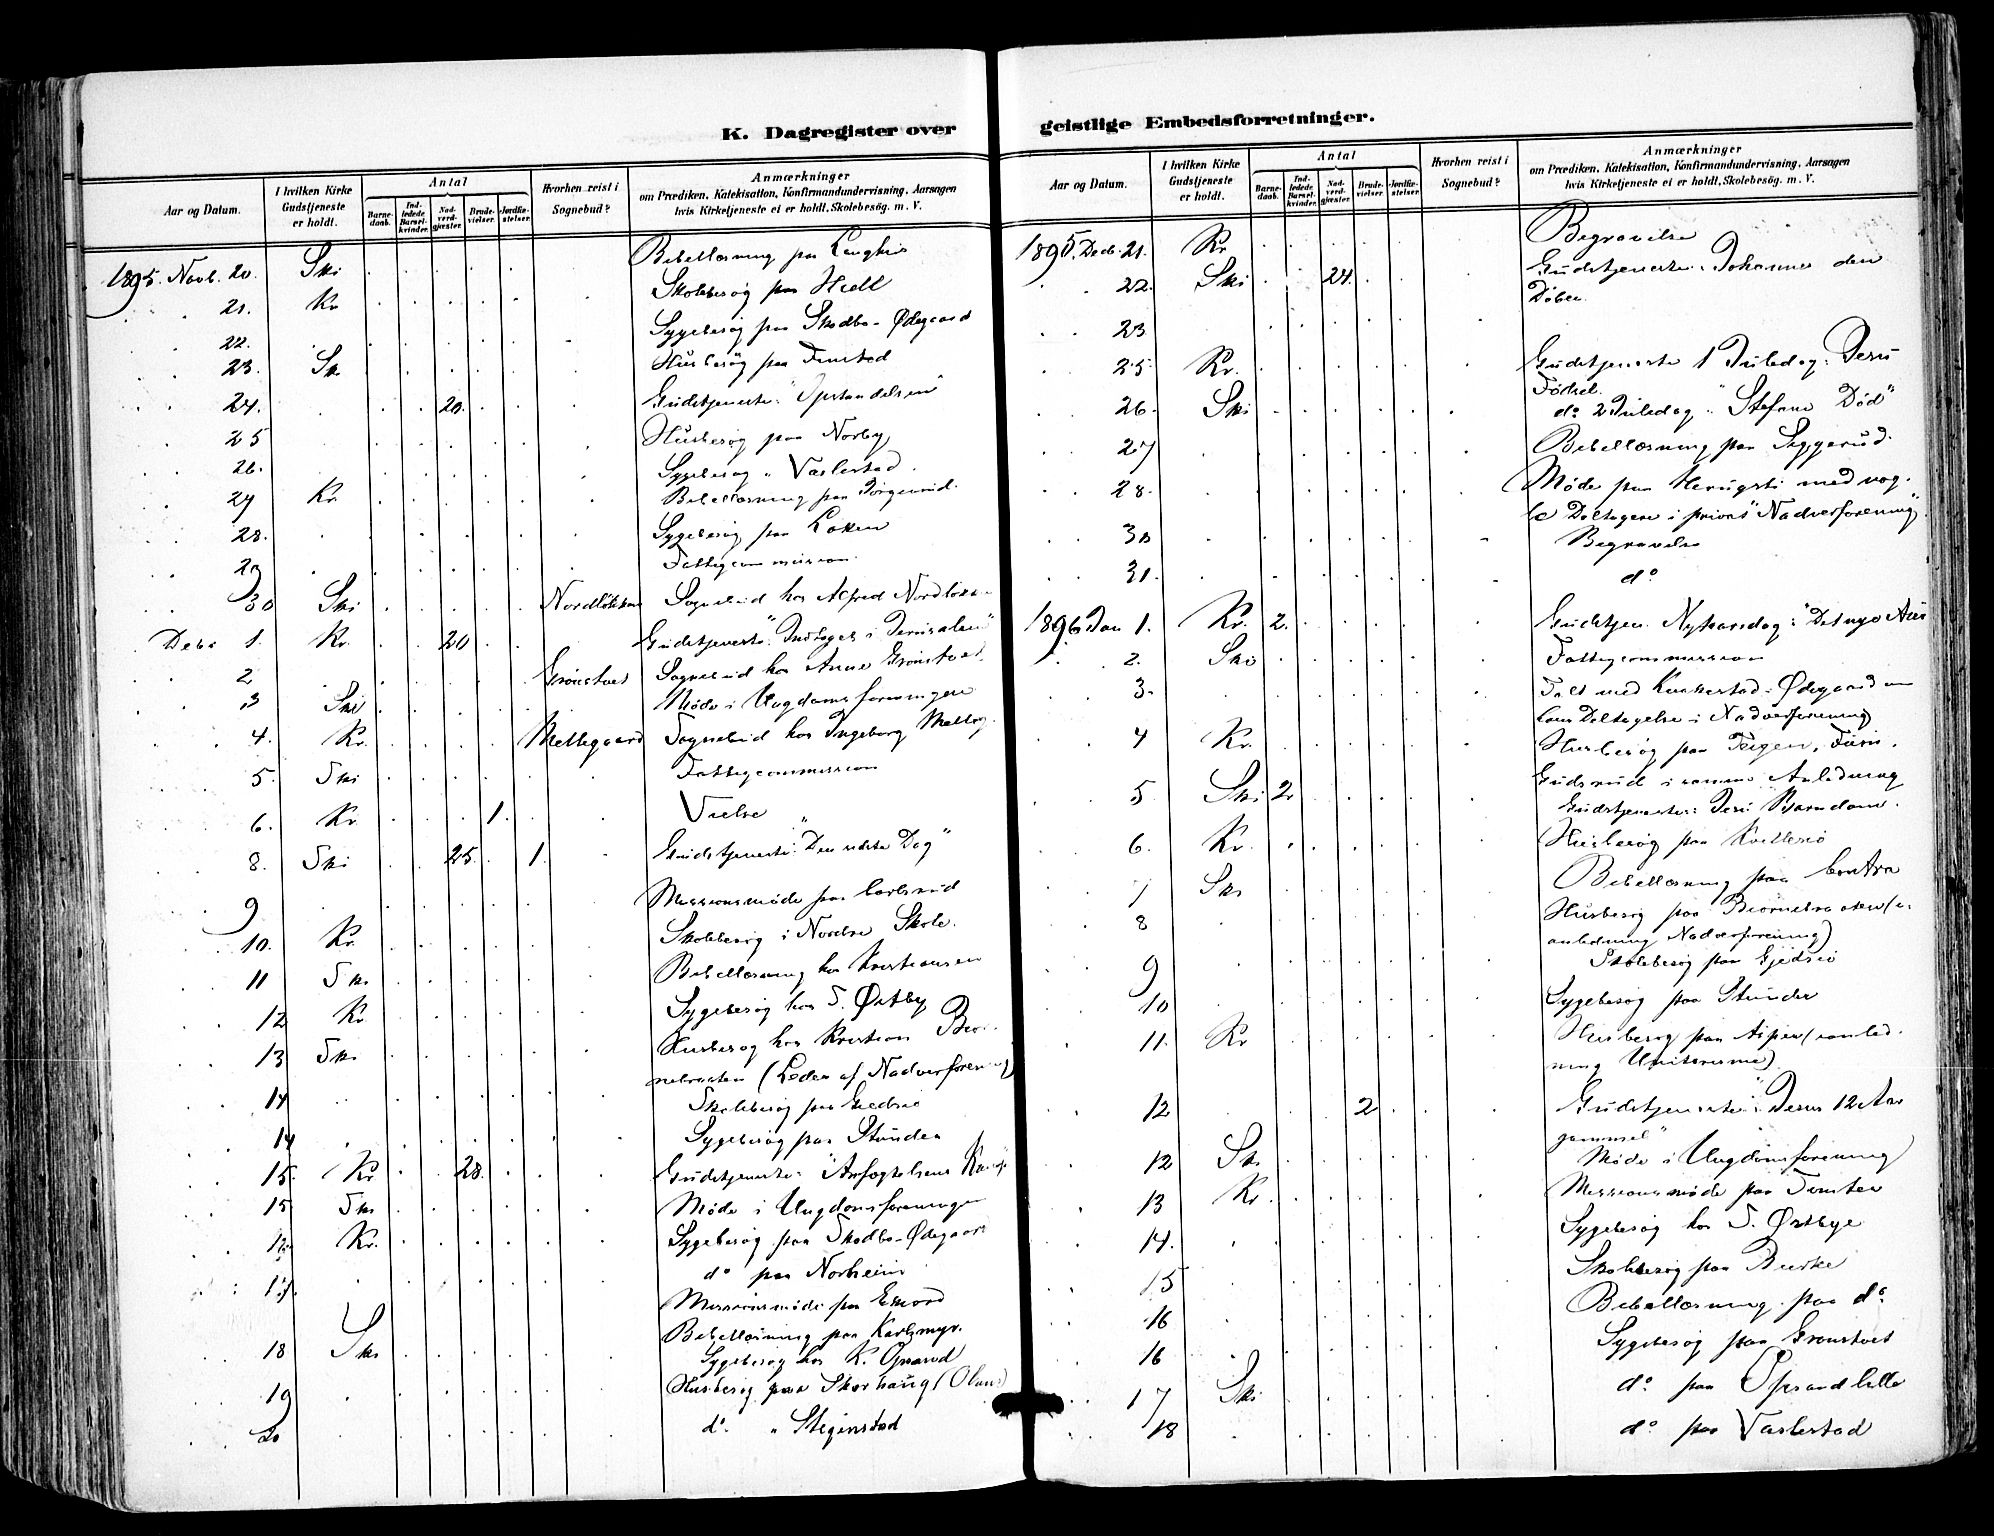 K. Dagregister over
geistlige Embedsforretninger.
Aar og Datum.
I hvilken Kirke Gudstjeneste er holdt.
Antal
Barnedaab.
Indledede Barselkvinder.
Nadverdgjæster.
Brudevielser.
Jordfæstelser.
Hvorhen reist i Sognebud?
Anmærkninger
om Prædiken, Katekisation, Konfirmandundervisning, Aarsagen
hvis Kirketjeneste ei er holdt, Skolebesøg. m. V.
1895. Novb. 20. Ski Bibellæsning paa
21. Kr Skolebesøg paa
22. Sygebesøg paa Skodbo-Ødegaard
23. Sk Husbesøg paa
24. 20. Gudstjeneste: "Opstandelsen"
25 Husbesøg paa Norby
26. Sygebesøg " Vaslestad.
27 Kr. Bibellæsning paa
28. Sygebesøg paa Løken
29 Fattigcommission
30 Ski Sognebud hos Alfred
Debr 1. Kr. 20 Gudstjeneste: "Indtoget i Jerusalem"
2 Grønstvet Sognebud hos Anne Grønstvet
3 Ski Møde i Ungdomsforeningen
4. Kr. Mellegaard Sognebud hos Ingeborg
5. Ski Fattigcommission
6. Kr. 1. Vielse
8. Ski 25. 1. Gudstjeneste: "Den sidste Dag"
9 Missionsmøde paa Carlsrud
10. Kr. Skolebesøg i Nordre Skole.
11 Ski Bibellæsning hos Kristiansen
12 Kr. Sygebesøg hos T. Østby
13 Ski Husbesøg hos Kristian
(Leder af Nadverforening)
14 Skolebesøg paa
14 Sygebesøg paa Stunder
15. Kr 28. Gudstjeneste: "Anfægtelsens Kamp"
15 Ski Møde i Ungdomsforeningen
Kr. Sygebesøg paa Skodbo-Ødegaard
17. do paa Norheim
Missionsmøde paa
18 Ski Bibellæsning paa Karlsmyr.
Sygebesøg hos K. Opsand
19 Husbesøg paa Skorhaug
20 do " Steginstad
Aar og Datum.
I hvilken Kirke Gudstjeneste er holdt.
Antal
Barnedaab.
Indledede Barselkvinder.
Nadverdgjæster.
Brudevielser.
Jordfæstelser.
Hvorhen reist i Sognebud?
Anmærkninger
om Prædiken, Katekisation, Konfirmandundervisning, Aarsagen
hvis Kirketjeneste ei er holdt, Skolebesøg. m. V.
1895. Decb. 21. Kr Begravelse
22. Ski 24. Gudstjeneste: Johannes den
Døber.
23
25 Kr. Gudstjeneste 1 Juledag: Jesu
Fødsel.
26 Ski do 2 Juledag "Stefans Død"
27 Bibellæsning paa Siggerud.
28. Møde paa med nog-
le Deltagere i privat "Nadverforening".
30 Begravelse
31. do
1896 Jan 1. Kr. 2. Gudstjen. Nytaarsdag: "Det nye Aar
2. Ski Fattigcommission
3. Talt med Ødegaard om
hans Deltagelse i Nadverforening
4 Kr. Husbesøg paa Teigen,
i samme Anledning
5 Ski 2 Gudstjeneste: Jesu Barndom.
6. Kr. Husbesøg paa
7 Ski Bibellæsning paa Contra
8 Husbesøg paa (i
anledning Nadverforening)
9 Skolebesøg paa
10 Sygebesøg paa Stunder
11. Kr Husbesøg paa Aspen (i anled-
ning
12 2 Gudstjeneste: "Jesus 12 Aar
gammel"
12 Ski Møde i Ungdomsforening
13 Kr. Missionsmøde paa Tomter
14. Sygebesøg hos T. Østbye
15 Skolebesøg paa
16 Bibellæsning paa do
16 Sygebesøg paa Grønstvet
17 Ski do paa Opsand lille
18 do paa Vaslestad